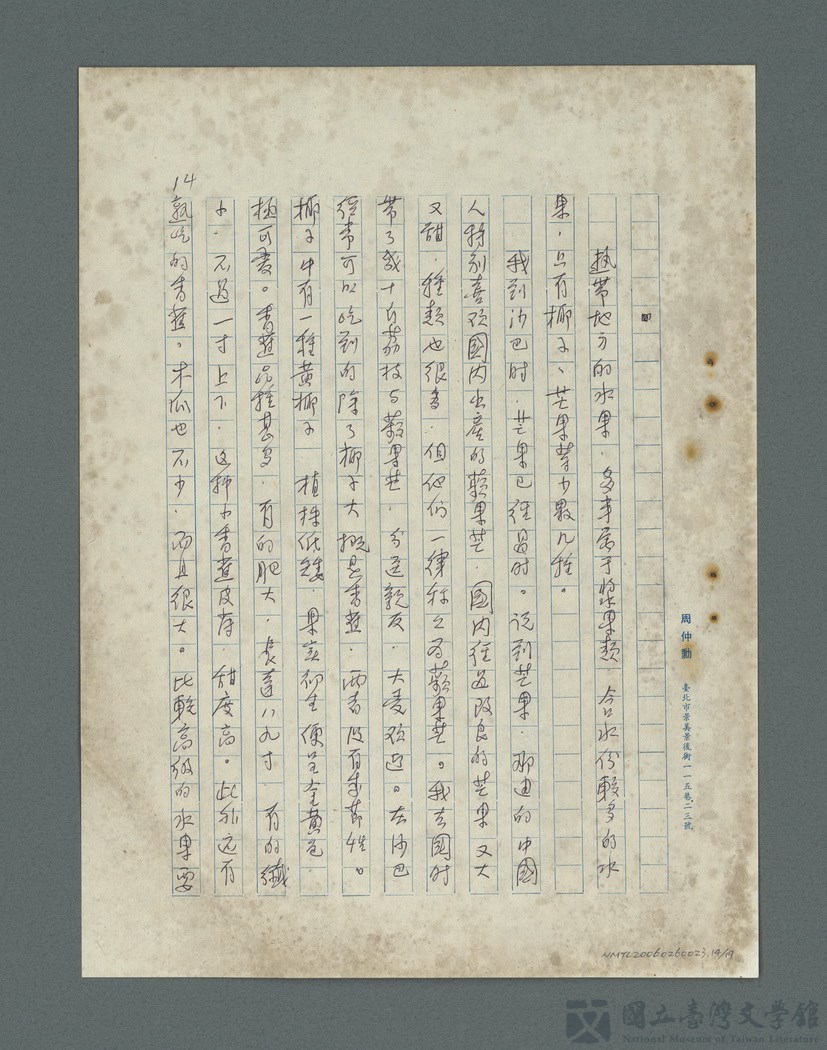 周仲勳
臺北市景美景後街一一五巷二三號
四
熱帶地方的水果，多半屬于漿果類，含水份較多的水
果，只有椰子、芒果等少數几種。
我到沙巴时，芒果已經過时。说到芒果，那边的中國
人特别喜欢國内出產的蘋果芒，國内經过改良的芒果又大
又甜，種類也很多，但他们一律称之為蘋果芒。我去國时
带了幾十斤荔枝与蘋果芒，分送親友，大受欢迎。在沙巴
經常可以吃到的除了椰子大概是香蕉，两者没有季節性。
椰子中有一種黄椰子，植株低矮，果实初生便呈金黄色，
極可爱。香蕉品種甚多，有的肥大，長達八九寸，有的纖
小，不過一寸上下，这种小香蕉皮薄，甜度高。此外还有
熟吃的香蕉。木瓜也不少，而且很大。比較高级的水果要
14
NMTL20060260023.14/19
國立臺灣文學館
National Museum of Taiwan Literature